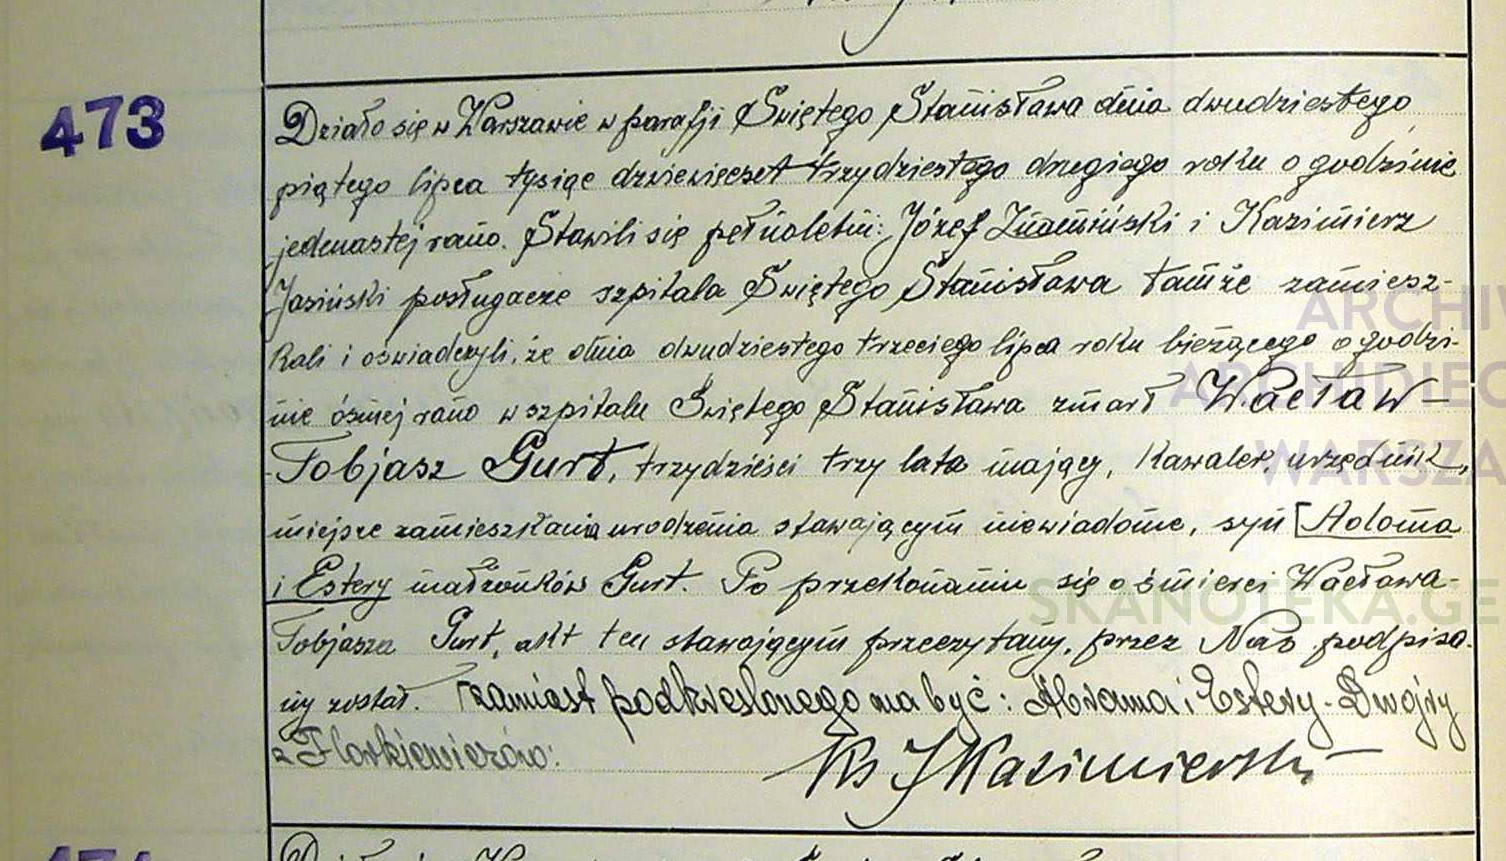 473
Działo się w Warszawie w parafji Świętego Stanisława dnia dwudziestego
piątego lipca tysiąc dziewięcset trzydziestego drugiego roku o godzinie
jedenastej rano. Stawili się pełnoletni: Józef Znamiński i Kazimierz
Jasiński posługacze szpitala Świętego Stanisława tamże zamiesz-
kali i oświadczyli, że dnia dwudziestego trzeciego lipca roku bieżącego o godzi-
nie ósmej rano w szpitalu Świętego Stanisława zmarł Wacław-
Tobjasz Gurt, trzydzieści trzy lata mający, kawaler, urzędnik,
miejsce zamieszkania urodzenia stawającym niewiadome, syn [Adolma
i Estery małżonków Gurt. Po przekonaniu się o śmierci Wacława-
Tobjasza Gurt, akt ten stawającym przeczytany, przez Nas podpisa-
ny został. Zamiast podkreślonego ma być: Abrama i Estery-Dwojry
z Florkiewiczów:
Ks J Kazimierski
ARCHIW
ARCHIDIEC
WARSZA
SKANOTEKA.GE